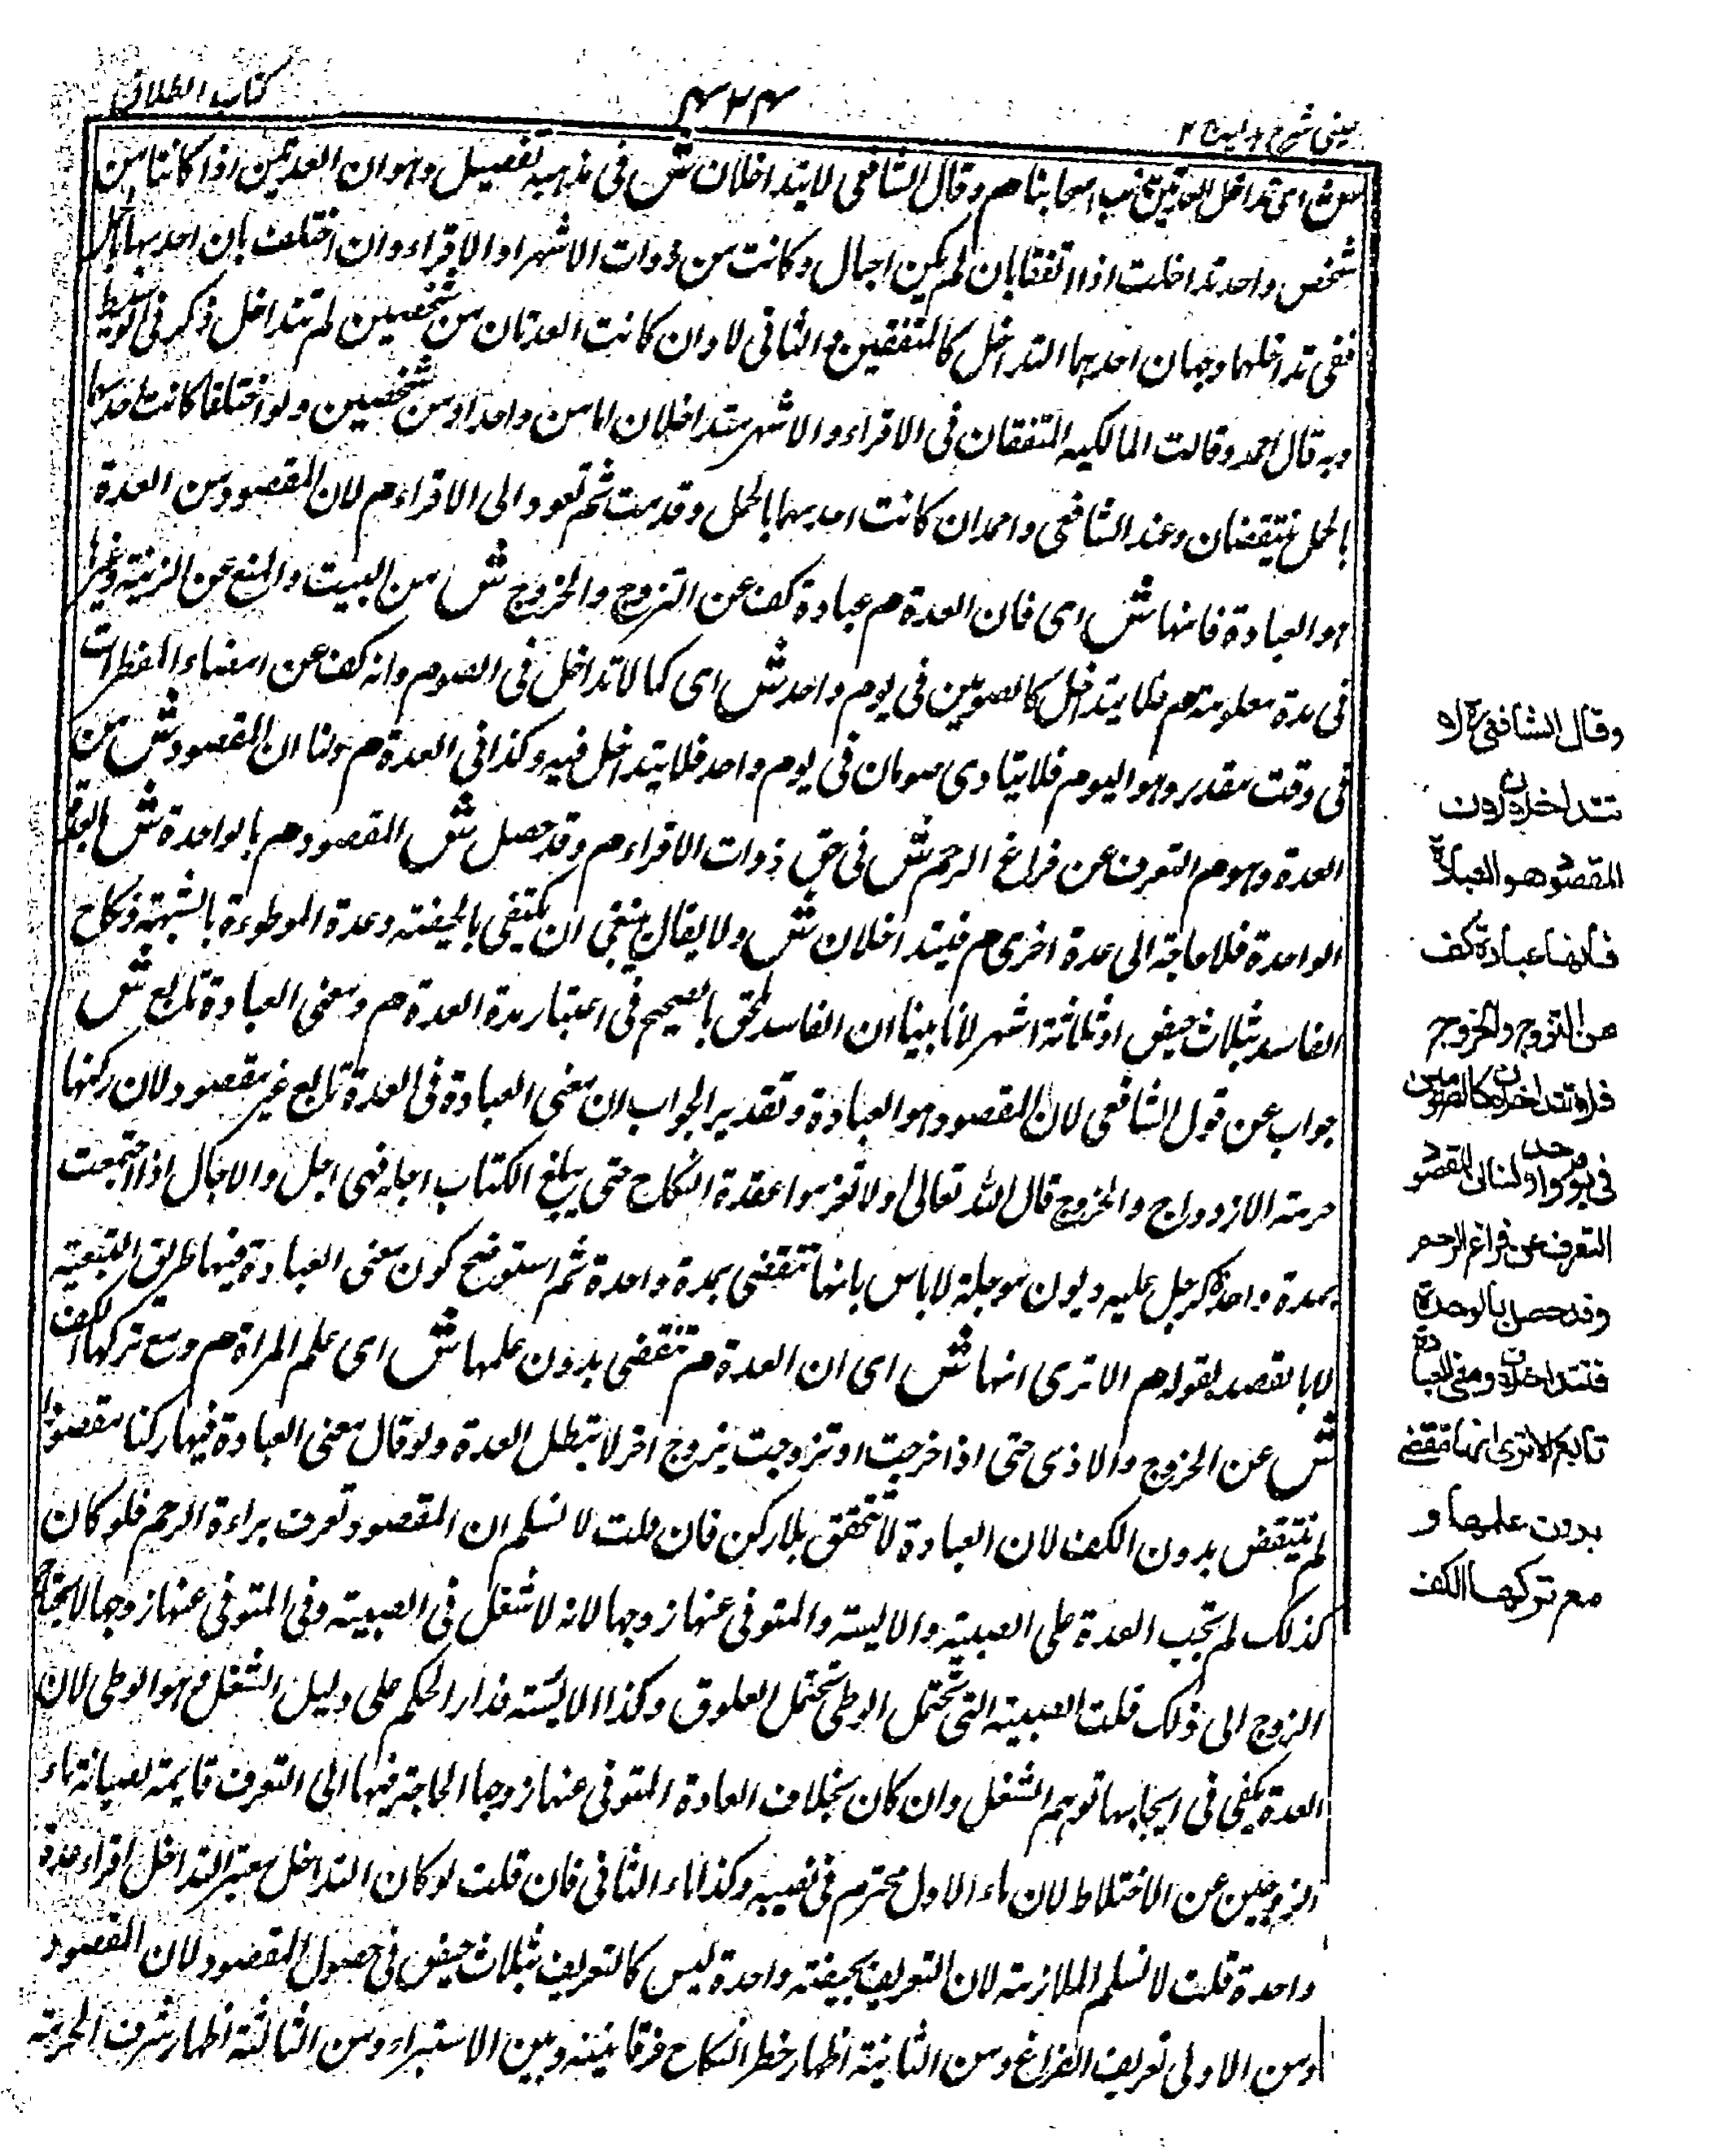 كتاب الطلاق
عينى شرح هدايه ج ٢
ش اى تداخل العدتين مذهب اصحابنا هم وقال الشافعى لا يتداخلان ش فى مذهبه تفصيل وهو ان العدتين اذا كانتا من
شخص واحد تداخلت اذا اتفقا بان لم يكن احبال وكانت من ذوات الاشهر او الاقراء وان اختلفت بان احدبهما
ففى تداخلهما وجهان احدبهما التداخل كالمتفقين والثانى لا وان كانت العدتان من شخصين لم تتداخل ذكر فى الوسيط
وبه قال احمد وقالت المالكيه المتفقان فى الاقراء والاشهر يتداخلان اما من واحد او من شخصين ولو اختلفا كانت احدبهما
بالحمل فتنقضان وعند الشافعى واحمد ان كانت احدبهما بالحمل وقدمت ثم تعود الى الاقراء م لان المقصود من العدة
هو العبادة فانها ش اى فان العدة م عبادة كف عن التزوج والخروج ش من البيت والمنع عن الزينة وغيرها
فى مدة معلومة م فلا يتداخل كالصومين فى يوم واحد ش اى كما لا تداخل فى الصوم وانه كف عن اقتضاء المفطرات
فى وقت مقدر وهو اليوم فلا يتادى صومان فى يوم واحد فلا يتداخل فيه وكذا فى العدة م ولنا ان المقصود ش من
العدة وهو م التعرف عن فراغ الرحم ش فى حق ذوات الاقراء م وقد حصل ش المقصود م بالواحدة ش اى بالعدة
الواحدة فلا حاجة الى عدة اخرى م فيتداخلان ش ولا يقال ينبغى ان يكتفى بالحيضة وعدة الموطوءة بالشبهة ونكاح
الفاسد بثلاث حيض او ثلاثة اشهر لانا بينا ان الفاسد يلحق بالصحيح فى اعتبار مدة العدة م ومعنى العبادة تابع ش
جواب عن قول الشافعى لان المقصود هو العبادة وتقدير الجواب ان معنى العبادة فى العدة تابع غير مقصود لان ركنها
حرمة الازدواج والخروج قال الله تعالى ولا تعزموا عقدة النكاح حتى يبلغ الكتاب اجله فهى اجل والاجال اذا اجتمعت
بمدة واحدة كرجل عليه ديون موجلة لا باس بانها تنقضى بمدة واحدة ثم استوضح كون معنى العبادة فيها طريق التبعية
لا بالقصد بقوله م الا ترى انها ش اى ان العدة م تنقضى بدون علمها ش اى علم المراة م ومع تركها الكف
ش عن الخروج والاذى حتى اذا خرجت او تزوجت بزوج اخر لا تبطل العدة ولو قال معنى العبادة فيها ركنا مقصودا
لم تنقض بدون الكف لان العبادة لا تتحقق بلا ركن فان قلت لا نسلم ان المقصود تعرف براءة الرحم فلو كان
كذلك لم تجب العدة على الصبية والايسة والمتوفى عنها زوجها لانه لا شغل فى الصبية وفى المتوفى عنها زوجها لا يحتاج
الزوج الى ذلك قلت الصبية التى تحتمل الوطى تحتمل العلوق وكذا الايسة فدار الحكم على دليل الشغل هو الوطى لان
العدة يكفى فى ايجابها توهم الشغل وان كان بخلاف العادة المتوفى عنها زوجها الحاجة فيها الى التعرف قايمة لصيانة ماء
الزوجين عن الاختلاط لان ماء الاول محترم فى نصيبه وكذا ماء الثانى فان قلت لو كان التداخل معتبرا لتداخل اقراء عدة
واحدة قلت لا نسلم الملازمة لان التعريف بحيضة واحدة ليس كالتعريف بثلاث حيض فى حصول المقصود لان المقصود
من الاولى تعريف الفراغ ومن الثانية اظهار خطر النكاح فرقا بينه وبين الاستبراء ومن الثالثة اظهار شرف الحرية
وقال الشافعى لا
تتداخلان لان
المقصود هو العبادة
فانها عبادة كف
عن التزوج والخروج
فلا تتداخلان كالصومين
فى يوم واحد ولنا ان المقصود
التعرف عن فراغ الرحم
وقد حصل بالواحدة
فتتداخلان ومعنى العبادة
تابع الا ترى انها تنقضى
بدون علمها و
مع تركها الكف